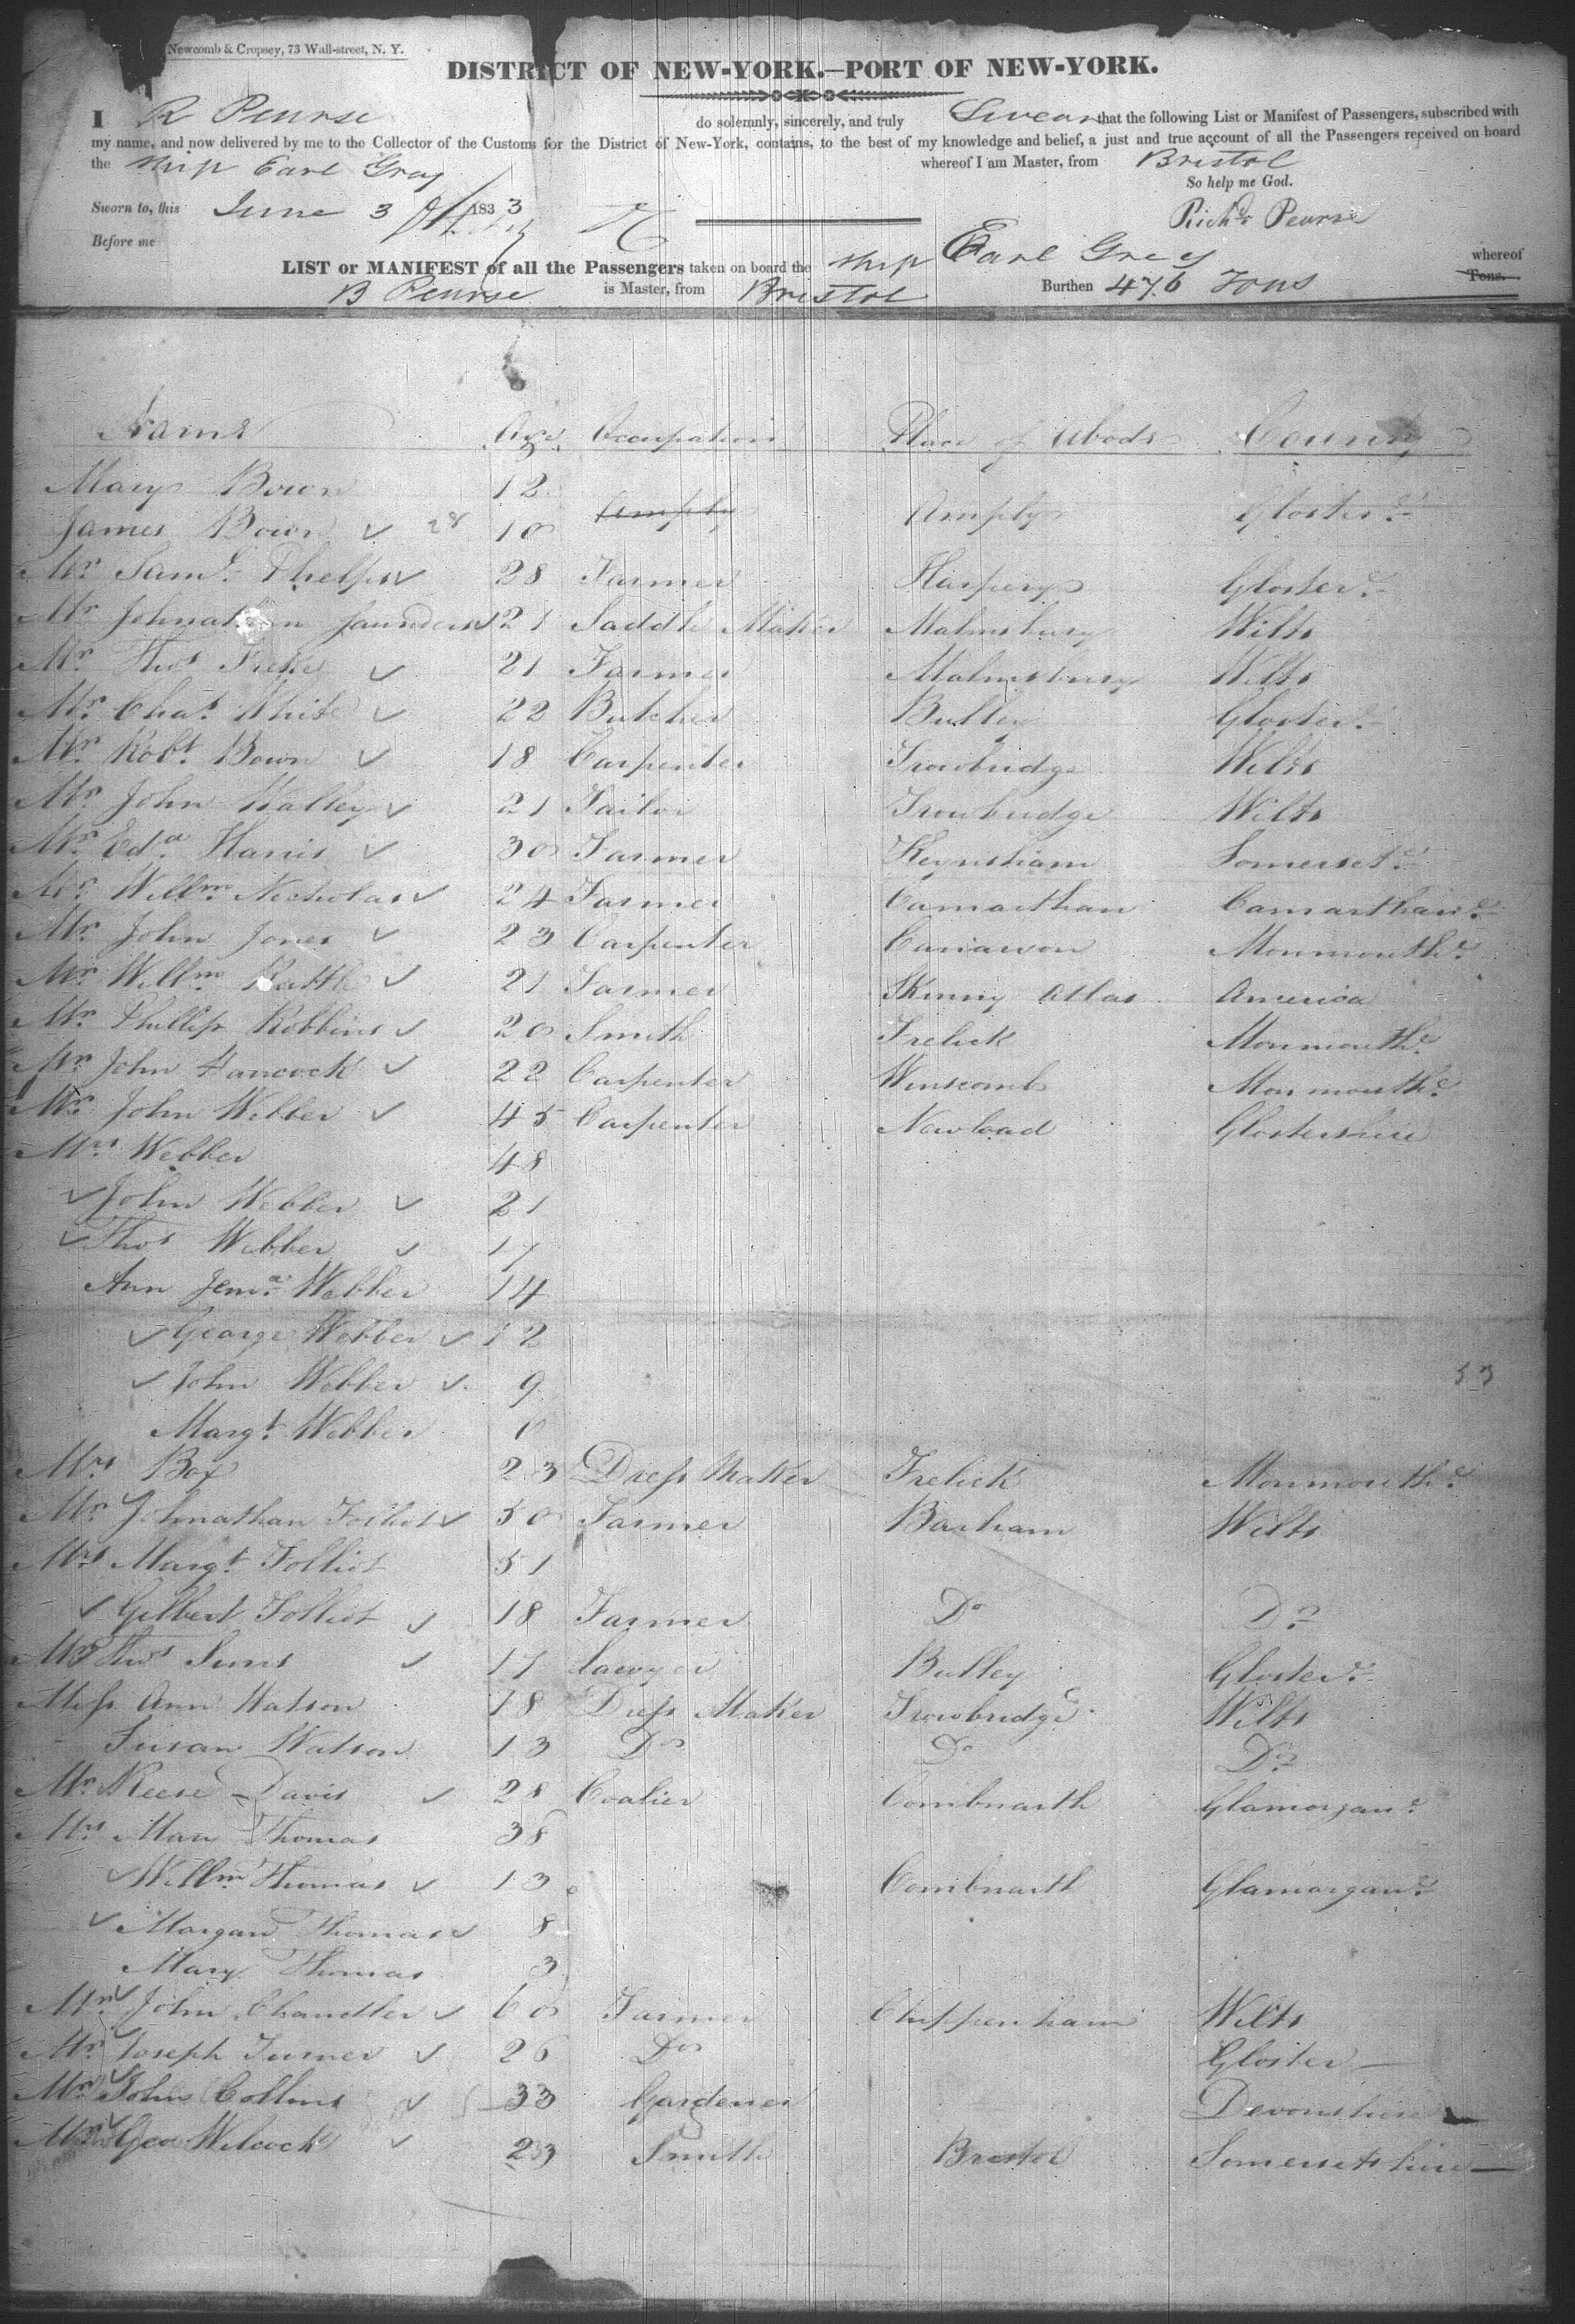 Newcomb & Cropsey, 73 Wall-street, N. Y.
DISTRICT OF NEW-YORK.—PORT OF NEW-YORK.
I R Pearse do solemnly, sincerely, and truly Swear that the following List or Manifest of Passengers, subscribed with
my name, and now delivered by me to the Collector of the Customs for the District of New-York, contains, to the best of my knowledge and belief, a just and true account of all the Passengers received on board
the Ship Earl Grey whereof I am Master, from Bristol
So help me God.
Sworn to, this June 3 1833
Richd Pearse
Before me
LIST or MANIFEST of all the Passengers taken on board the Ship Earl Grey whereof
B Pearse is Master, from Bristol Burthen 476 Tons Tons.
Names Age Occupation Place of Abode County
Mary Bown 12
James Bown 28 10 Ampty Ampty Gloster
Mr Saml Phelps 28 Farmer Harpery Gloster
Mr Johnathon Saunders 21 Saddle Maker Malmsbury Wilts
Mr Thos 21 Farmer Malmsbury Wilts
Mr Chas White 22 Butcher Bulley Gloster
Mr Robt Bown 18 Carpenter Trowbridge Wilts
Mr John Halley 21 Tailor Trowbridge Wilts
Mr Edd Harris 30 Farmer Keynsham Somerset
Mr Willm Nicholas 24 Farmer Camarthan Camarthan
Mr John Jones 23 Carpenter Monmouth
Mr Willm Rattle 21 Farmer Skinny Atlas America
Mr Phillip Robbins 20 Smith Trelick Monmouth
Mr John Hancock 22 Carpenter Winscomb Monmouth
Mr John Webber 45 Carpenter Glostershire
Mrs Webber 48
John Webber 21
Thos Webber 17
Ann Jema Webber 14
George Webber 12
John Webber 9
53
Margt Webber
Mrs Box 23 Dress Maker Trelick Monmouth
Mr Johnathan Folliot 50 Farmer Barham Wilts
Mrs Margt Folliot 51
Gilbert Folliot 18 Farmer Do Do
Mr Thos Sims 17 Sawyer Bulley Gloster
Miss Ann Watson 18 Dress Maker Trowbridge Wilts
Susan Watson 13 Do Do Do
Mr Reese Davis 28 Coalier Combnarth Glamorgan
Mrs Thomas 38
Willm Thomas 13 Combnarth Glamorgan
Morgan Thomas 8
Mary Thomas 3
Mr John Chandler 60 Farmer Chippenham Wilts
Mr Joseph Turner 26 Do Gloster
Mr John Collins 33 Gardener Devonshire
Mr Geo Wilcock 23 Smith Bristol Somersetshire